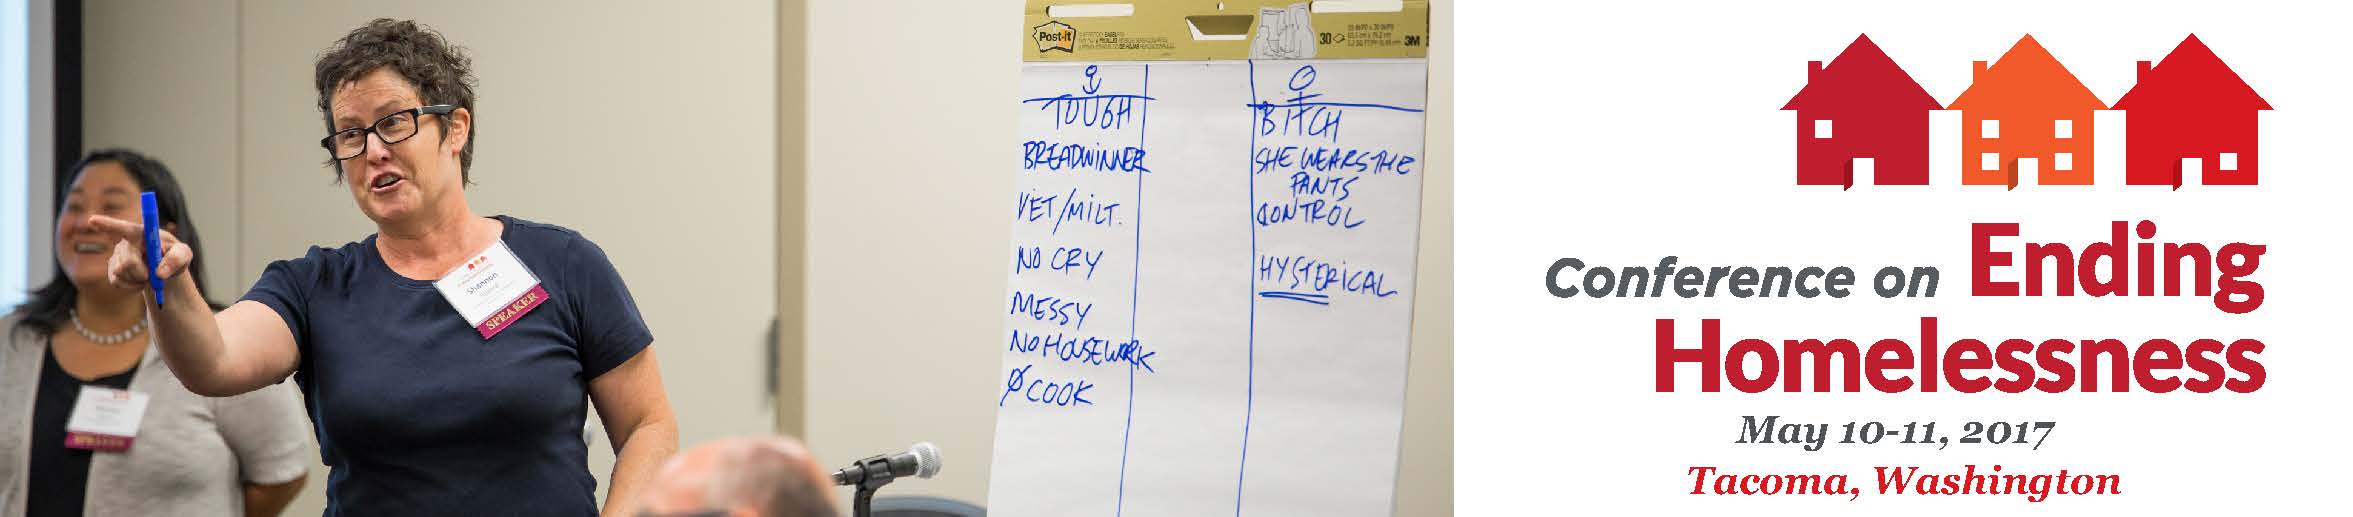 Shannon
SPEAKER
SPEAKER
Post-it
30
3M
TOUGH
BREADWINNER
VET/MILT.
NO CRY
MESSY
NO HOUSEWORK
Ø COOK
BITCH
SHE WEARS THE
PANTS
CONTROL
HYSTERICAL
Conference on Ending
Homelessness
May 10-11, 2017
Tacoma, Washington